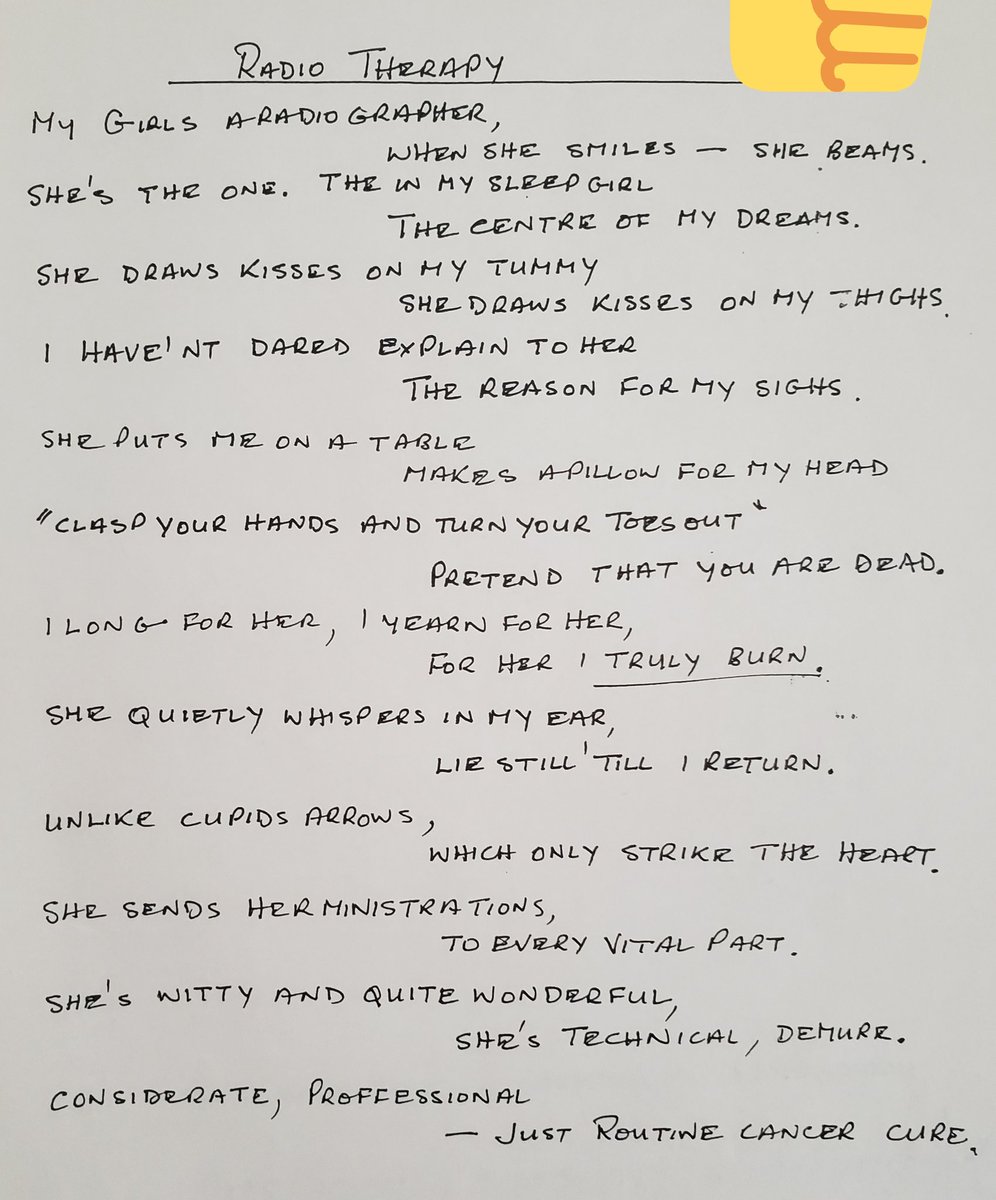 RADIO THERAPY
MY GIRLS A RADIOGRAPHER,
WHEN SHE SMILES — SHE BEAMS.
SHE'S THE ONE. THE IN MY SLEEP GIRL
THE CENTRE OF MY DREAMS.
SHE DRAWS KISSES ON MY TUMMY
SHE DRAWS KISSES ON MY THIGHS.
I HAVE'NT DARED EXPLAIN TO HER
THE REASON FOR MY SIGHS.
SHE PUTS ME ON A TABLE
MAKES A PILLOW FOR MY HEAD
"CLASP YOUR HANDS AND TURN YOUR TOES OUT"
PRETEND THAT YOU ARE DEAD.
I LONG FOR HER, I YEARN FOR HER,
FOR HER I TRULY BURN.
SHE QUIETLY WHISPERS IN MY EAR,
LIE STILL 'TILL I RETURN.
UNLIKE CUPIDS ARROWS,
WHICH ONLY STRIKE THE HEART.
SHE SENDS HER MINISTRATIONS,
TO EVERY VITAL PART.
SHE'S WITTY AND QUITE WONDERFUL,
SHE'S TECHNICAL, DEMURE.
CONSIDERATE, PROFFESSIONAL
— JUST ROUTINE CANCER CURE.